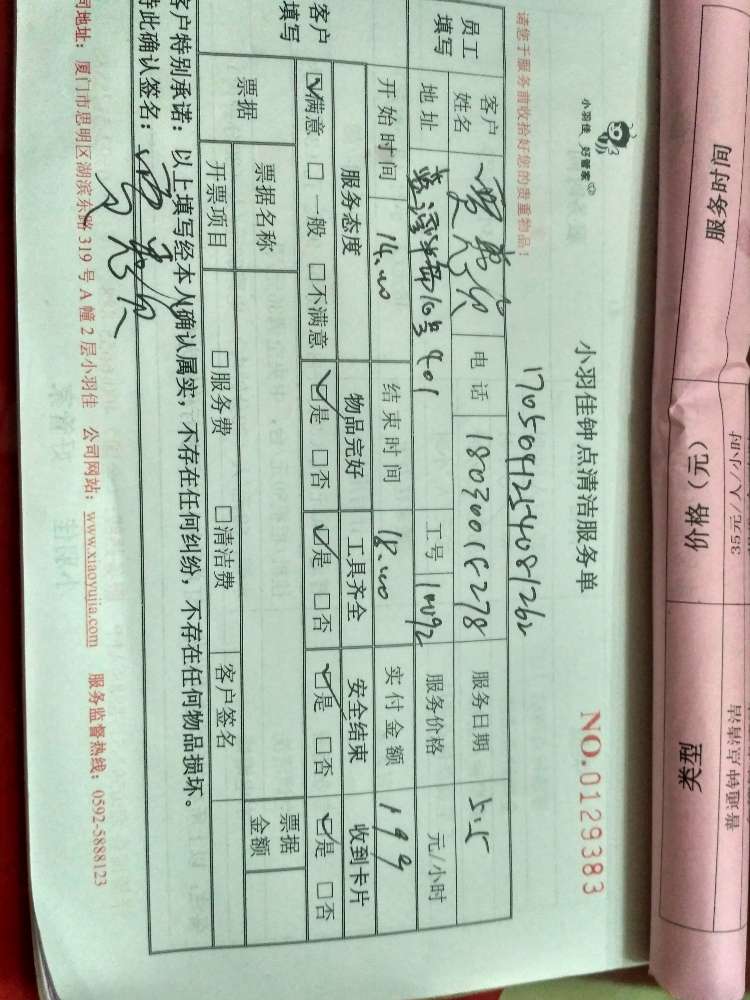 服务时间
价格（元）
类型
35元/人/小时
普通钟点清洁
小羽佳 好管家
小羽佳钟点清洁服务单
NO.0129383
请您于服务前收拾好您的贵重物品！
1705041254081262
员工填写
客户姓名
电话
18030018278
服务日期
5.5
地址
工号
服务价格
元/小时
开始时间
14.00
结束时间
18.00
实付金额
199
客户填写
服务态度
物品完好
工具齐全
安全结束
收到卡片
☑满意 □一般 □不满意
☑是 □否
☑是 □否
☑是 □否
☑是 □否
票据
票据名称
票据金额
开票项目
□服务费 □清洁费
客户签名
客户特别承诺：以上填写经本人确认属实，不存在任何纠纷，不存在任何物品损坏。
特此确认签名：
司地址：厦门市思明区湖滨东路319号A幢2层小羽佳 公司网站：www.xiaoyujia.com 服务监督热线：0592-5888123